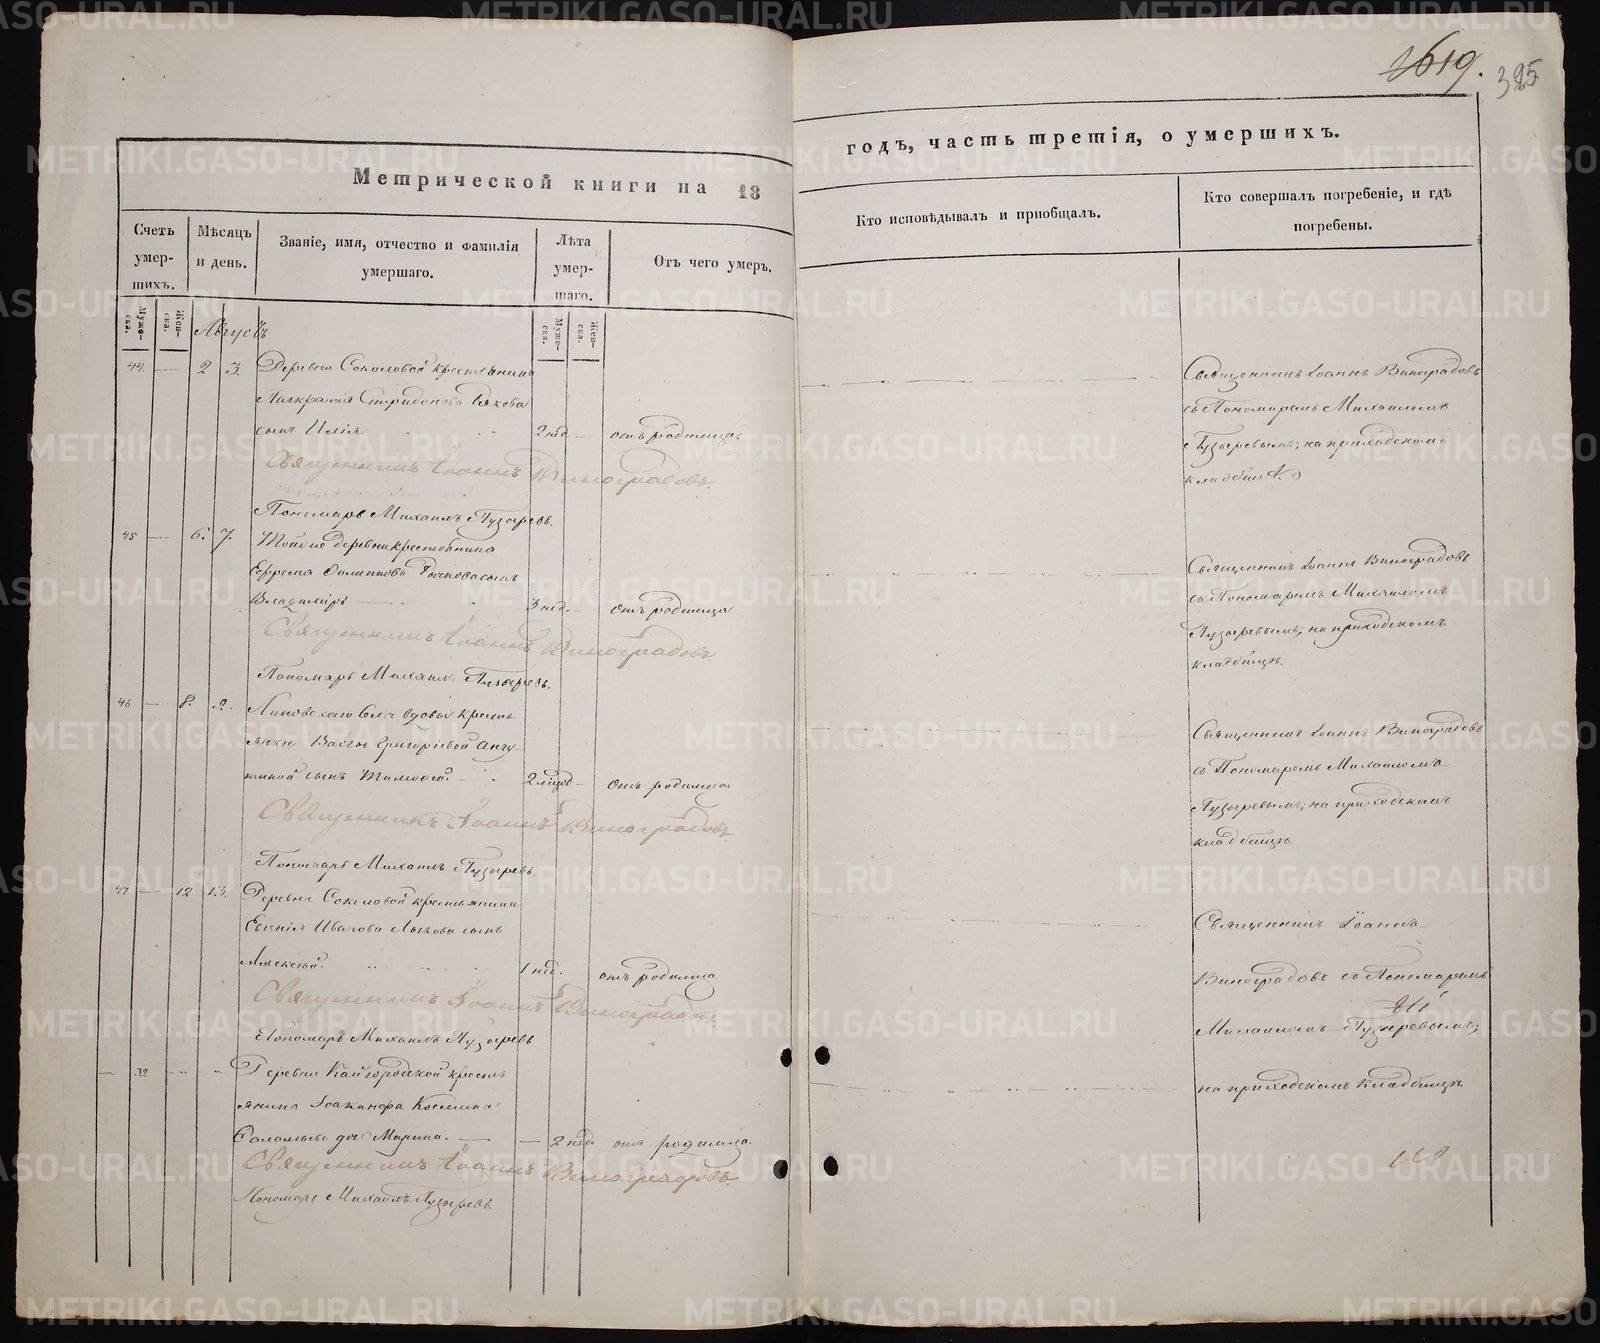 1619.
385
Метрической книги на 18
годъ, часть третія, о умершихъ.
Счетъ умер-шихъ.
Мѣсяцъ и день.
Званіе, имя, отчество и фамилія умершаго.
Лѣта умер-шаго.
Отъ чего умеръ.
Кто исповѣдывалъ и приобщалъ.
Кто совершалъ погребеніе, и гдѣ погребены.
Муже-ска.
Жен-ска.
Муже-ска.
Жен-ска.
Августъ
44. 2 3. Деревни Соколовой крестьянина
сынъ Илія 2 нед. отъ родимца
Священникъ Іоаннъ Виноградовъ
съ Пономаремъ Михаиломъ
Пузыревымъ; на приходскомъ
кладбищѣ
Священникъ Іоаннъ Виноградовъ.
Пономарь Михаилъ Пузыревъ.
45 6. 7. Тойже деревни крестьянина
Ефрема Филипова сынъ
Владиміръ 3 нед. отъ родимца
Священникъ Іоаннъ Виноградовъ
съ Пономаремъ Михаиломъ
Пузыревымъ, на приходскомъ
кладбищѣ.
Священникъ Іоаннъ Виноградовъ
Пономарь Михаилъ Пузыревъ.
46 8. 9. Липовскаго села вдовы кресть
янки Григоріевой
сынъ Тимофей. отъ родимца
Священникъ Іоаннъ Виноградовъ
съ Пономаремъ Михаиломъ
Пузыревымъ; на приходскомъ
кладбищѣ
Священникъ Іоаннъ Виноградовъ
Пономарь Михаилъ Пузыревъ.
47 12 13. Деревни Соколовой крестьянина
Евгенія Иванова сынъ
Алексѣй. 1 нед. отъ родимца
Священникъ Іоаннъ
Виноградовъ съ Пономаремъ
Михаиломъ Пузыревымъ;
на приходскомъ кладбищѣ
Священникъ Іоаннъ Виноградовъ
Пономарь Михаилъ Пузыревъ
Деревни Кайгородской кресть
янина Козмина
дочь Марина. 2 нед. отъ родимца.
Священникъ Іоаннъ Виноградовъ
Пономарь Михаилъ Пузыревъ.
METRIKI.GASO-URAL.RU